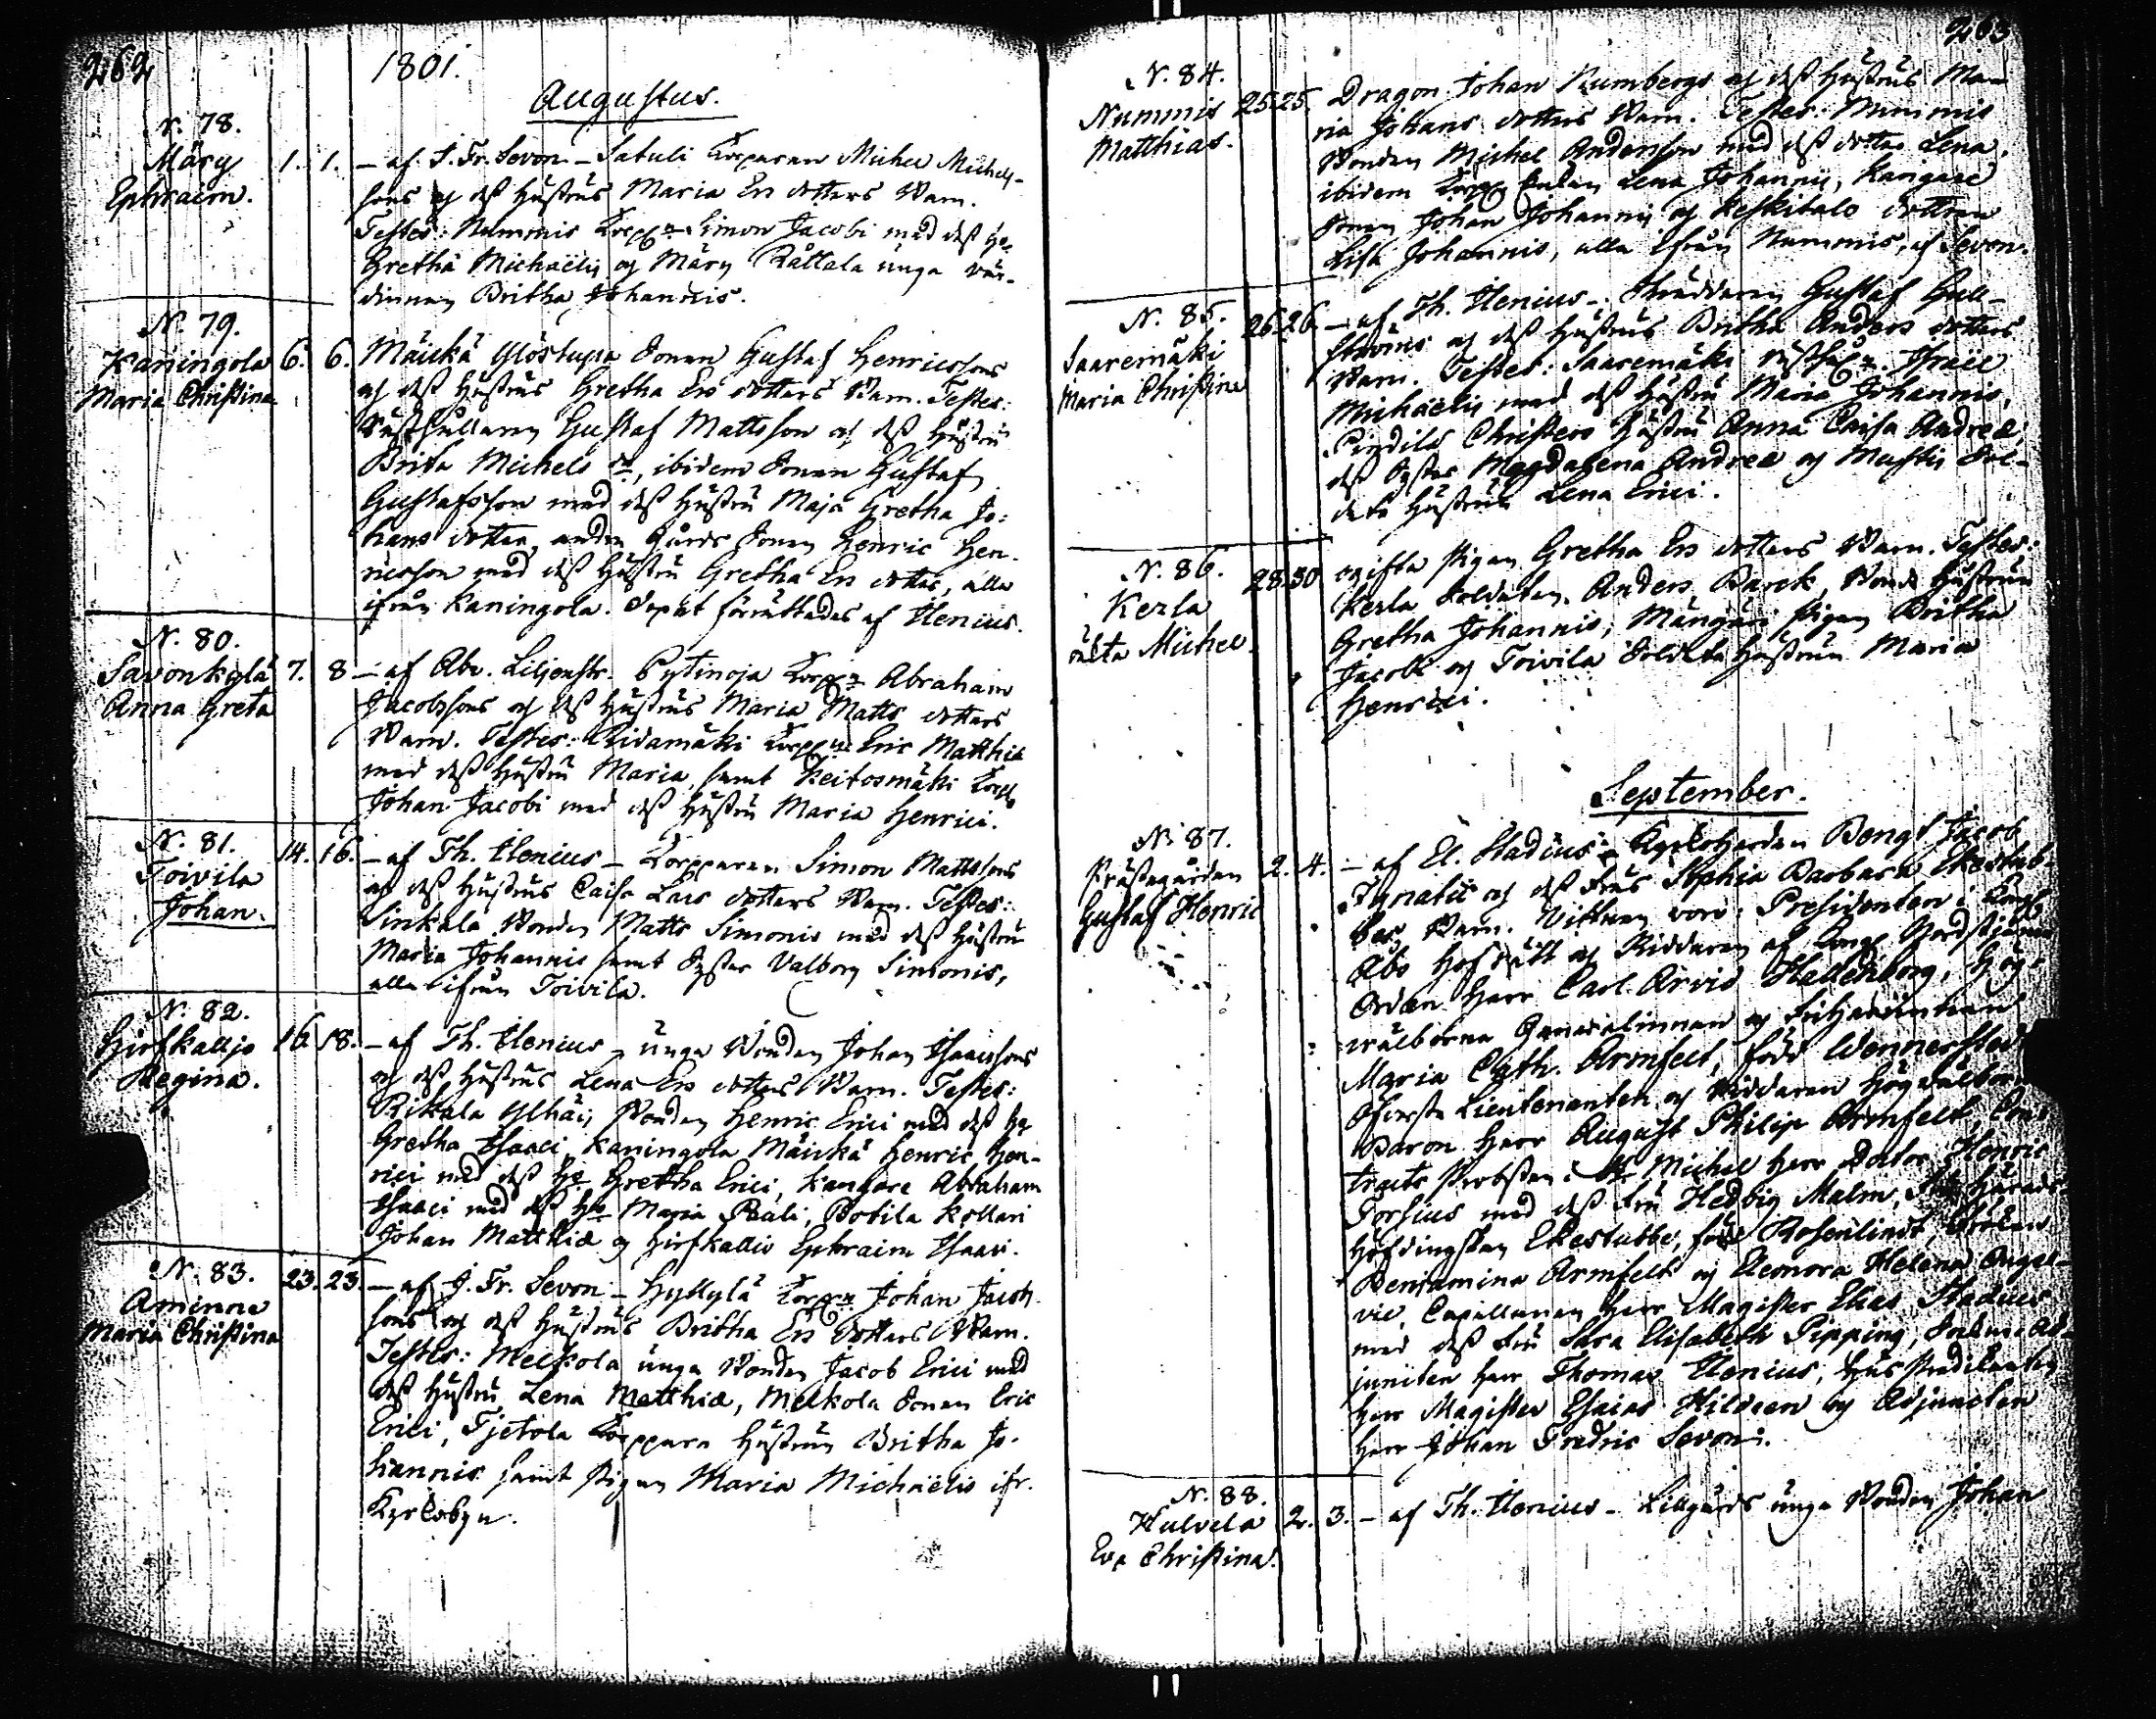 262
1801.
Augustus.
N. 78.
Märy
Ephraim.
1. 1. – af J. Fr. Sevon – Satuli Torparen Michel Michels-
sons och dess Hustrus Maria Ers dotters Barn.
Testes: Nummis Torp. Simon Jacobi med dess H.
Gretha Michaëlis och Märy Råttala unga vär-
dinnan Britha Johannis.
N. 79.
Kaningola
Maria Christina
6. 6. Mäickä Ylöstupa Sonen Gustaf Henricssons
och dess Hustrus Gretha Ers dotters Barn. Testes:
Rusthållaren Gustaf Mattsson och dess Hustru
Brita Michels dr, ibidem Sonen Gustaf
Gustafsson med dess Hustru Maja Gretha Jo-
hans dotter, andra Gårds Sonen Henric Hen-
ricsson med dess Hustru Gretha Ers dotter, alla
ifrån Kaningola. Dopet förrättades af Ilenius.
N. 80.
Savonkylä
Anna Greta
7. 8 – af Abr. Liljenstr. Pytinoja Torp. Abraham
Jacobssons och dess Hustrus Maria Matts dotters
Barn. Testes: Ridamäki Torp. Eric Matthiæ
med dess Hustru Maria, samt Keitosmäki Torp.
Johan Jacobi med dess Hustru Maria Henrici.
N. 81.
Toivila
Johan.
14. 16. – af Th. Ilenius – Torpparen Simon Mattssons
och dess Hustrus Caisa Lars dotters Barn. Testes:
Sinkala Bonden Matts Simonis med dess Hustru
Maria Johannis samt Syster Valborg Simonis,
alla ifrån Toivila.
N. 82.
Hirfkallio
Regina.
16. 18. – af Th. Ilenius – unga Bonden Johan Isaacssons
och dess Hustrus Lena Ers dotters Barn. Testes:
Rikala Ylhäis Bonden Henric Erici med dess H.
Gretha Isaaci, Kaningola Mäickä Henric Hen-
rici med dess H. Gretha Erici, Kangare Abraham
Isaaci med dess H. Maria Pauli, Botila Kollari
Johan Matthiæ och Hirfkallio Ephraim Isaaci.
N. 83.
Aminne
Maria Christina
23. 23. – af J. Fr. Sevon – Hyllylä Torp. Johan Jacobs-
sons och dess Hustrus Britha Ers dotters Barn.
Testes: Melkola unga Bonden Jacob Erici med
dess Hustru Lena Matthiæ, Melkola Sonen Eric
Erici, Tjetola Torppare Hustrun Britha Jo-
hannis samt Pigan Maria Michaëlis ifr.
Kyrkobyn.
263
N. 84.
Nummis
Matthias.
25. 25. Dragon Johan Rumbergs och dess Hustrus Ma-
ria Johans dotters Barn. Testes: Nummis
Bonden Michel Andersson med dess dotter Lena,
ibidem Torp. Enkan Lena Johannis, Kangare
Sonen Johan Johannis och Keskitalo dottren
Lisa Johannis, alla ifrån Nummis, af Sevon.
N. 85.
Saaremäki
Maria Christina
26. 26. – af Th. Ilenius – Skräddaren Gustaf Gull-
ströms och dess Hustrus Britha Anders dotters
Barn. Testes: Saaremäki Rusth. Israel
Michaëlis med dess Hustru Maria Johannis,
Christers Hustru Anna Caisa Andreæ,
dess Syster Magdalena Andreæ och Sol-
data Hustrun Lena Erici.
N. 86.
Kerla
oälta Michel.
28. 30 ogifta Pigan Gretha Ers dotters Barn. Testes:
Kerla Soldaten Anders Barck, Bonde Hustrun
Gretha Johannis, Mängäri Pigan Britha
Jacobi och Toivila Soldate Hustrun Maria
Henrici.
September.
N. 87.
Prästegården
Gustaf Henric
2. 4. – af El. Stadius – Kyrkoherden Bengt Jacob
Ignatii och dess Frus Sophia Barbara Ekestub-
bes Barn. Vittnen voro: Presidenten i Kongl.
Åbo Hofrätt och Riddaren af Kongl. Nordstjerne
Orden Herr Carl Arvid Hallenborg, Hög-
wälborna Generalinnan och Friherrinnan
Maria Cath. Armfelt, född Wennerstedt
Öfverste Lieutenanten och Riddaren Högwälborne
Baron Herr August Philip Armfelt, Con-
tracts Probsten i St. Michel Herr Doctor Henric
Forsius med dess Fru Hedvig Malm, Härads-
höfdingskan Ekestubbe, född Rosenlindt, Fröken
Benjamina Armfelt och Eleonora Helena Ougel-
vie, Capellanen Herr Magister Elias Stadius
med dess Fru Sara Elisabeth Pipping, Ad-
juncten Herr Thomas Ilenius, Hus Predikanten
Herr Magister Esaias Hildeen och Adjuncten
Herr Johan Fredric Sevon.
N. 88.
Hulvela
Eva Christina.
2. 3. – af Th. Ilenius – Lillgårds unga Bonden Johan